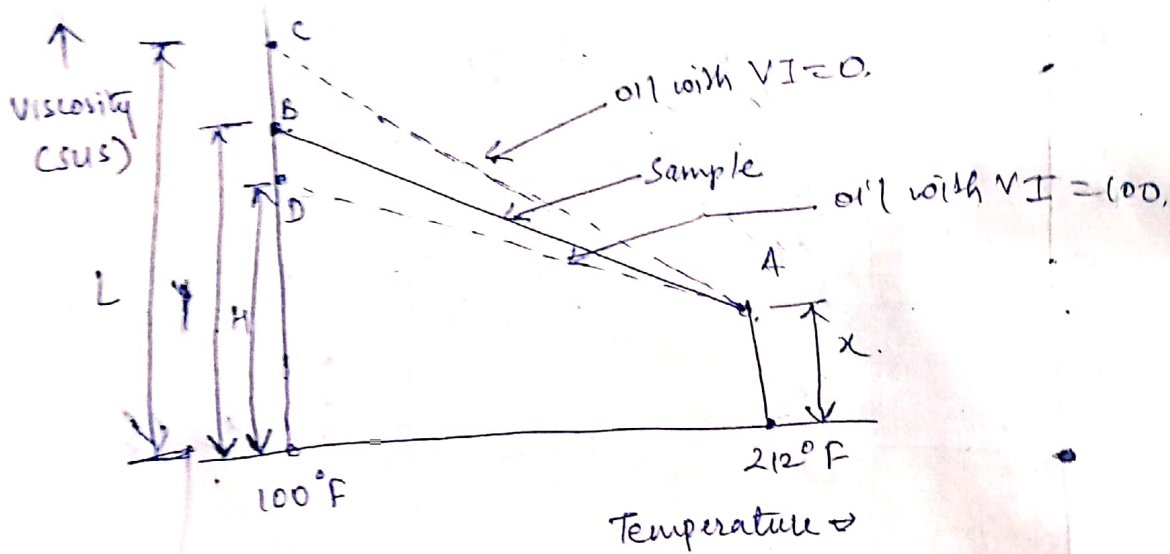 ↑
Viscosity
(SUS)
C
oil with VI=0.
B
Sample
oil with VI=100.
D
A
L
Y
H
x.
100°F
212°F
Temperature →